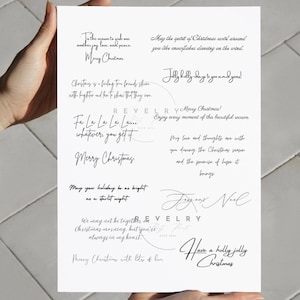 Tis the season to wish one
another joy, love, and peace.
Merry Christmas
May the spirit of Christmas swirl around
you like snowflakes dancing on the wind.
Jolly holly days to you and yours!
Christmas is a feeling true friends share
with laughter and love to show that they care
REVELRY
Merry Christmas!
Enjoy every moment of this beautiful season.
Fa La La La La...
whatever you get it
May love and thoughts are with
you during the Christmas season
and the promise of hope it
brings
Merry Christmas
May your holiday be as bright
as a starlit night
Joyeux Noel
REVELRY
We may not be together
Christmas morning, but you're
always in my heart.
Have a holly jolly
Christmas
Merry Christmas with lots of love